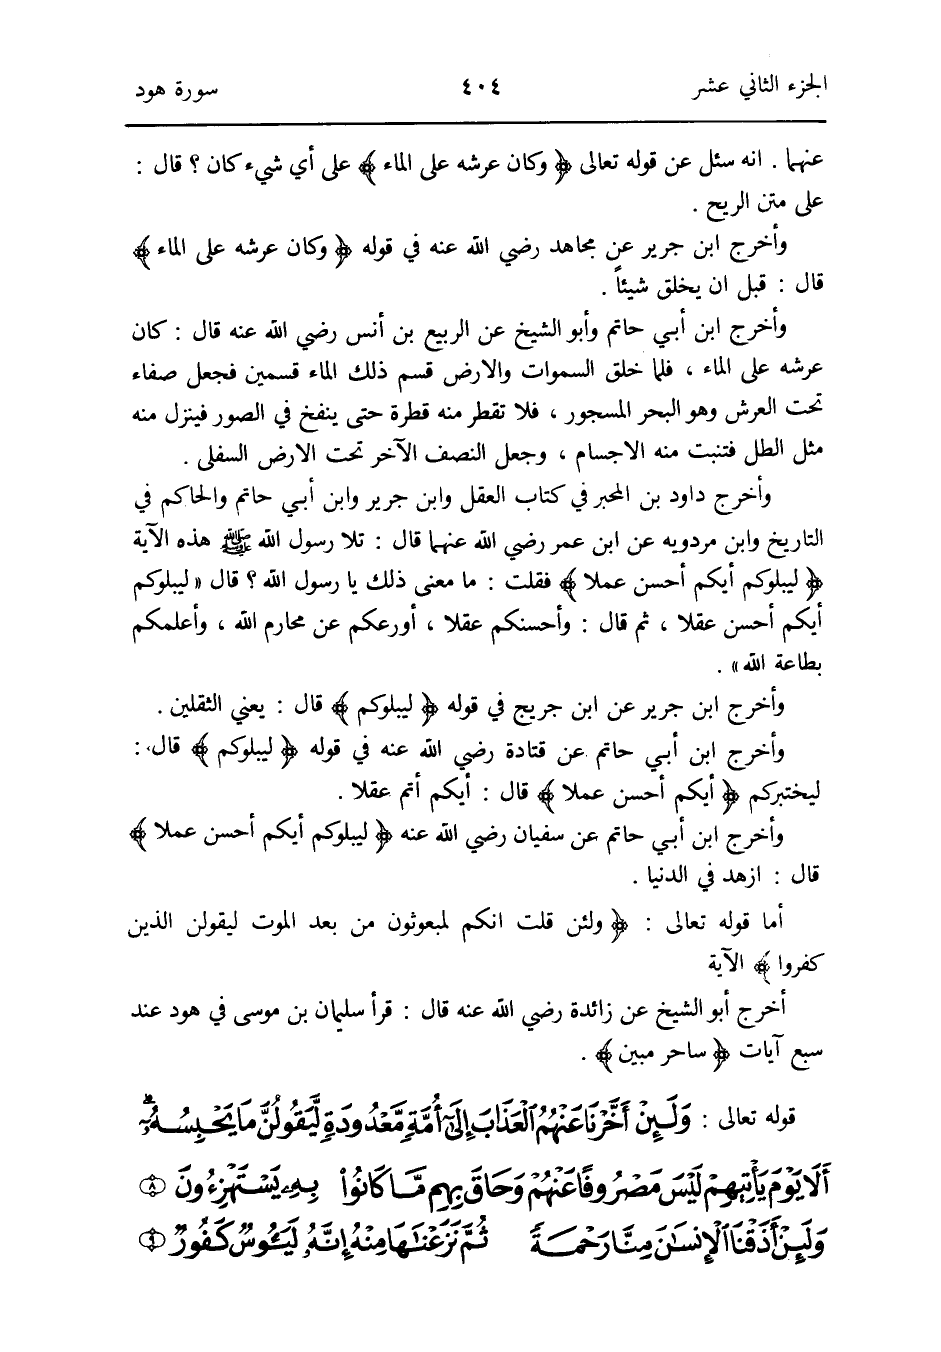 الجزء الثاني عشر ٤٠٤ سورة هود
عنهما . انه سئل عن قوله تعالى ﴿ وكان عرشه على الماء ﴾ على أي شيء كان ؟ قال :
على متن الريح .
وأخرج ابن جرير عن مجاهد رضي الله عنه في قوله ﴿ وكان عرشه على الماء ﴾
قال : قبل ان يخلق شيئاً .
وأخرج ابن أبي حاتم وأبو الشيخ عن الربيع بن أنس رضي الله عنه قال : كان
عرشه على الماء ، فلما خلق السموات والارض قسم ذلك الماء قسمين فجعل صفاء
تحت العرش وهو البحر المسجور ، فلا تقطر منه قطرة حتى ينفخ في الصور فينزل منه
مثل الطل فتنبت منه الاجسام ، وجعل النصف الآخر تحت الارض السفلى .
وأخرج داود بن المحبر في كتاب العقل وابن جرير وابن أبي حاتم والحاكم في
التاريخ وابن مردويه عن ابن عمر رضي الله عنهما قال : تلا رسول الله ﷺ هذه الآية
﴿ ليبلوكم أيكم أحسن عملا ﴾ فقلت : ما معنى ذلك يا رسول الله ؟ قال « ليبلوكم
أيكم أحسن عقلا ، ثم قال : وأحسنكم عقلا ، أورعكم عن محارم الله ، وأعلمكم
بطاعة الله » .
وأخرج ابن جرير عن ابن جريج في قوله ﴿ ليبلوكم ﴾ قال : يعني الثقلين .
وأخرج ابن أبي حاتم عن قتادة رضي الله عنه في قوله ﴿ ليبلوكم ﴾ قال :
ليختبركم ﴿ أيكم أحسن عملا ﴾ قال : أيكم أتم عقلا .
وأخرج ابن أبي حاتم عن سفيان رضي الله عنه ﴿ ليبلوكم أيكم أحسن عملا ﴾
قال : ازهد في الدنيا .
أما قوله تعالى : ﴿ ولئن قلت انكم لمبعوثون من بعد الموت ليقولن الذين
كفروا ﴾ الآية
أخرج أبو الشيخ عن زائدة رضي الله عنه قال : قرأ سليمان بن موسى في هود عند
سبع آيات ﴿ ساحر مبين ﴾ .
قوله تعالى : وَلَئِنْ أَخَّرْنَا عَنْهُمُ الْعَذَابَ إِلَىٰ أُمَّةٍ مَّعْدُودَةٍ لَّيَقُولُنَّ مَا يَحْبِسُهُ ۗ
أَلَا يَوْمَ يَأْتِيهِمْ لَيْسَ مَصْرُوفًا عَنْهُمْ وَحَاقَ بِهِم مَّا كَانُوا بِهِ يَسْتَهْزِءُونَ ۝٨
وَلَئِنْ أَذَقْنَا الْإِنسَانَ مِنَّا رَحْمَةً ثُمَّ نَزَعْنَاهَا مِنْهُ إِنَّهُ لَيَئُوسٌ كَفُورٌ ۝٩